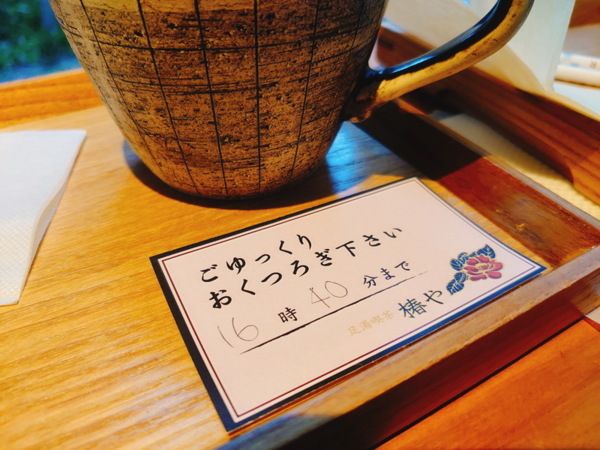 ごゆっくり
おくつろぎ下さい
16時40分まで
足湯喫茶 椿や